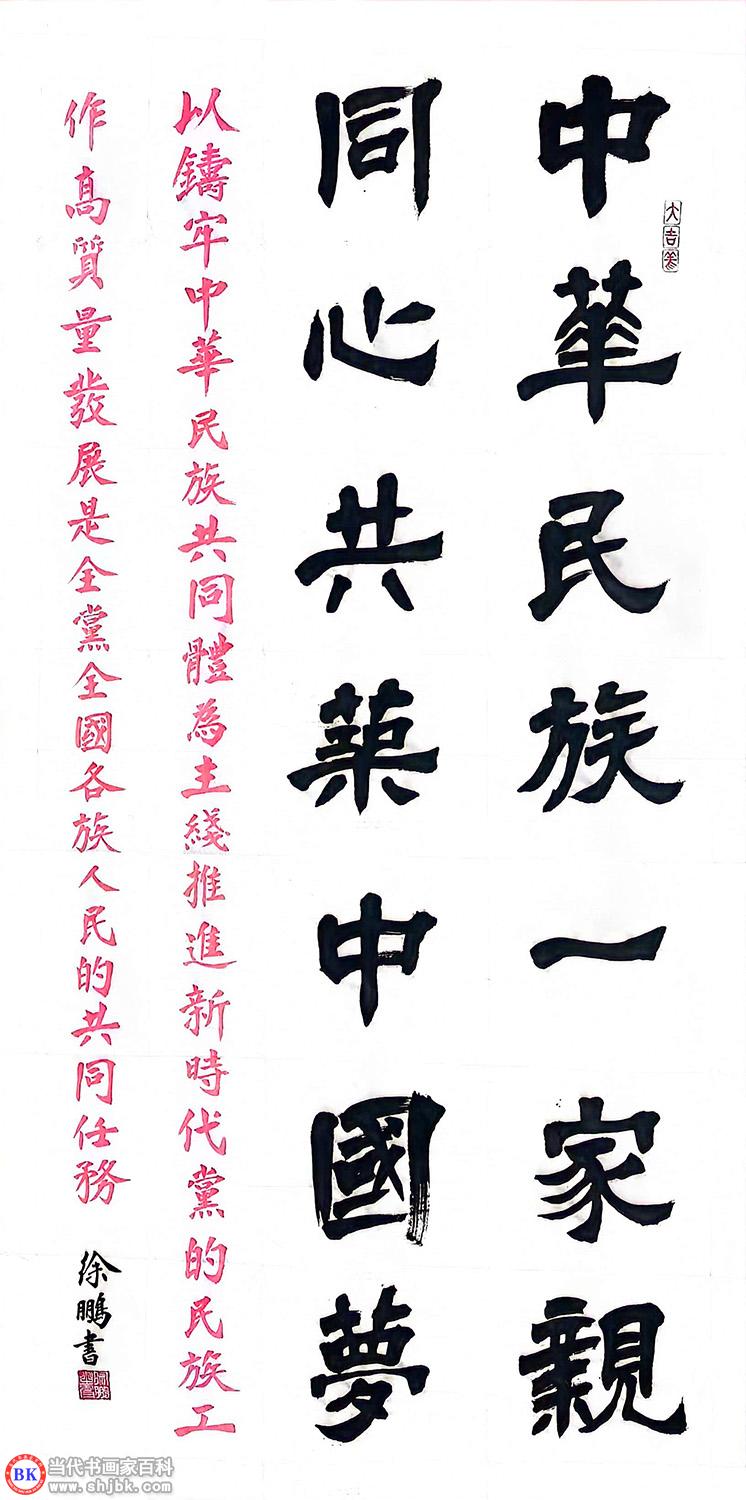 中華民族一家親
同心共築中國夢
以鑄牢中華民族共同體為主綫推進新時代黨的民族工
作高質量發展是全黨全國各族人民的共同任務
徐鵬書
大吉羊
BK 当代书画家百科
www.shjbk.com